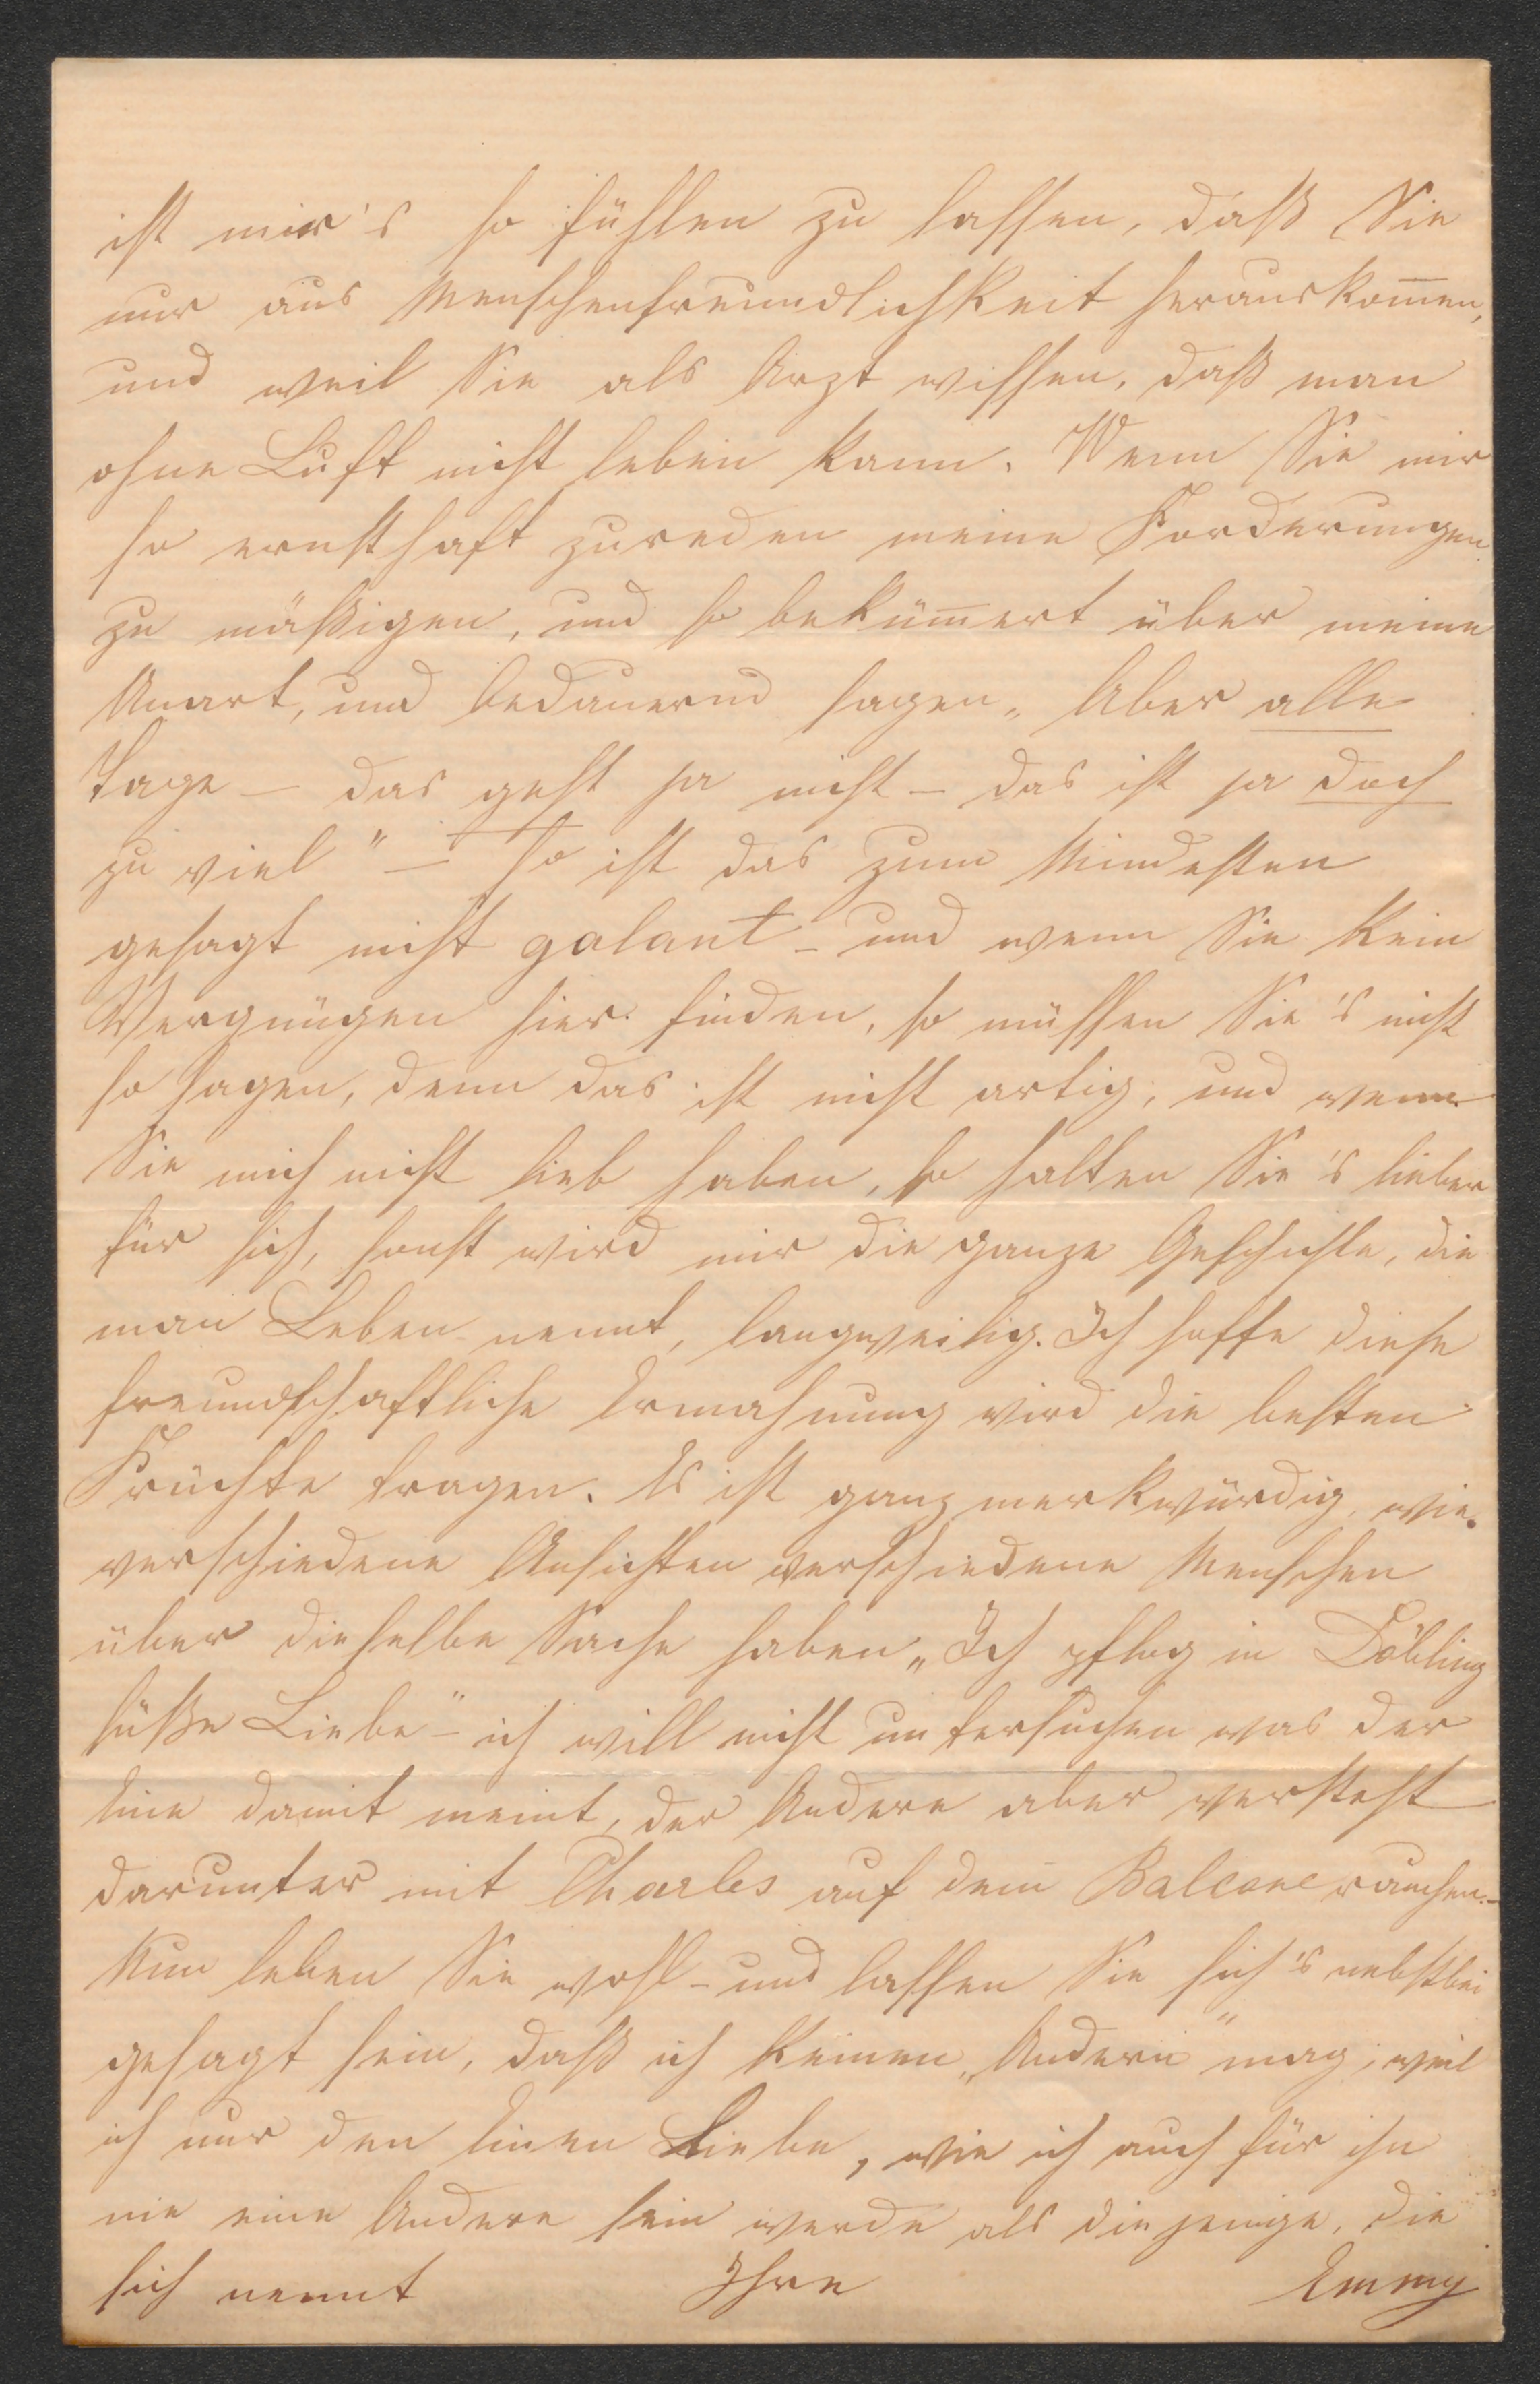 ist mir's so fühlen zu lassen, daß Sie
nur aus Menschenfreundlichkeit herauskom̄en,
und weil Sie als Arzt wissen, daß man
ohne Luft nicht leben kann. Wenn Sie mir
so ernsthaft zureden meine Forderungen
zu mäßigen, und so beküm̄ert über meine
Unart, und bedauernd sagen „Aber alle
Tage – das geht ja nicht – das ist ja doch
zu viel" – So ist das zum Mindesten
gesagt nicht galant – und wenn Sie kein
Vergnügen hier finden, so müssen Sie's nicht
so sagen, denn das ist nicht artig, und wenn
Sie mich nicht lieb haben, so halten Sie's lieber
für sich, sonst wird mir die ganze Geschichte, die
man Leben nennt, langweilig. Ich hoffe diese
freundschaftliche Ermahnung wird die besten
Früchte tragen. Es ist ganz merkwürdig, wie
verschiedene Ansichten verschiedene Menschen
über dieselbe Sache haben „Ich pflog in Döbling
süße Liebe" – ich will nicht untersuchen was der
Eine damit meint, der Andere aber versteht
darunter mit Charles auf dem Balcone rauchen. –
Nun leben Sie wohl – und lassen Sie sich's nebstbei
gesagt sein, daß ich keinen „Andern" mag, weil
ich nur den Einen Liebe, wie ich auch für ihn
nie eine Andere sein werde als diejenige, die
sich nennt Ihre Emmy